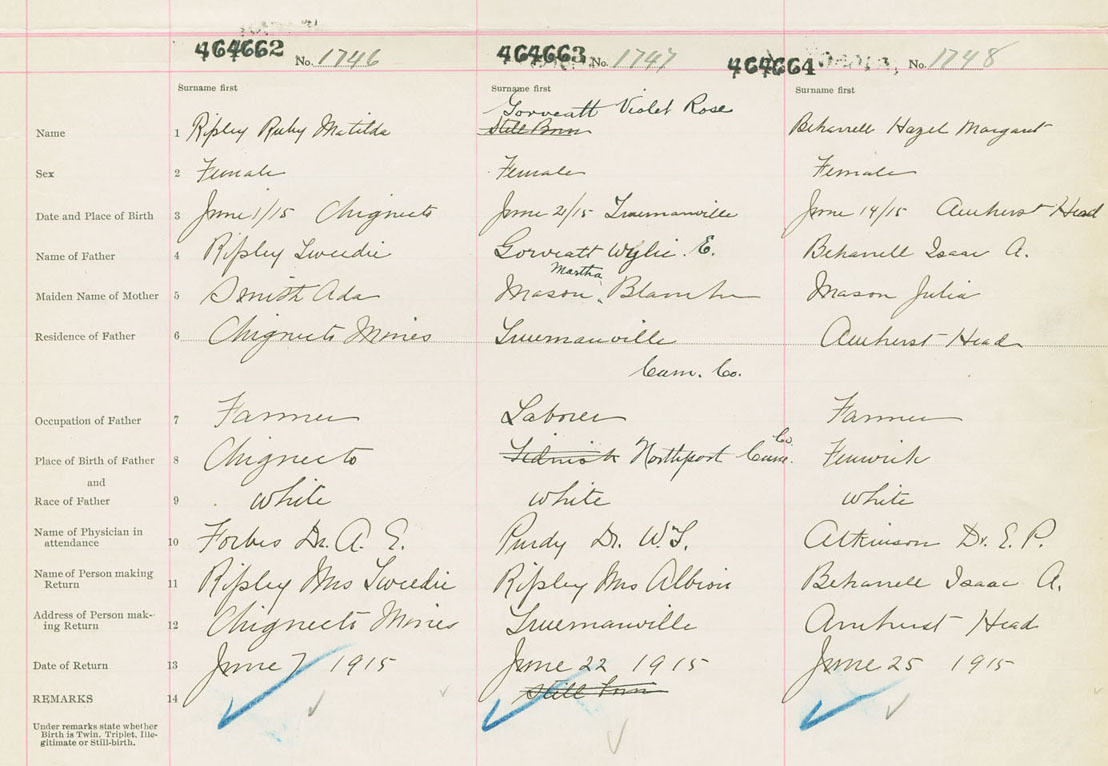 464662 No. 1746 464663 No. 1747 464664 No. 1748
Surname first Surname first Surname first
Gorveatt Violet Rose
Name 1 Ripley Ruby Matilda Still Born Beharrell Hazel Margaret
Sex 2 Female Female Female
Date and Place of Birth 3 June 1/15 Chignecto June 21/15 Truemanville June 14/15 Amherst Head
Name of Father 4 Ripley Tweedie Gorveatt Wylie E. Beharrell Isaac A.
Martha
Maiden Name of Mother 5 Smith Ada Mason Blanche Mason Julia
Residence of Father 6 Chignecto Mines Truemanville Amherst Head
Cum. Co.
Occupation of Father 7 Farmer Laborer Farmer
Co.
Place of Birth of Father 8 Chignecto Northport Cum. Fenwick
and
Race of Father 9 White White White
Name of Physician in
attendance 10 Forbes Dr. A. E. Purdy Dr. W. T. Atkinson Dr. E. P.
Name of Person making
Return 11 Ripley Mrs Tweedie Ripley Mrs Albion Beharrell Isaac A.
Address of Person mak-
ing Return 12 Chignecto Mines Truemanville Amherst Head
Date of Return 13 June 7 1915 June 22 1915 June 25 1915
REMARKS 14 Still born
Under remarks state whether
Birth is Twin, Triplet, Ille-
gitimate or Still-birth.